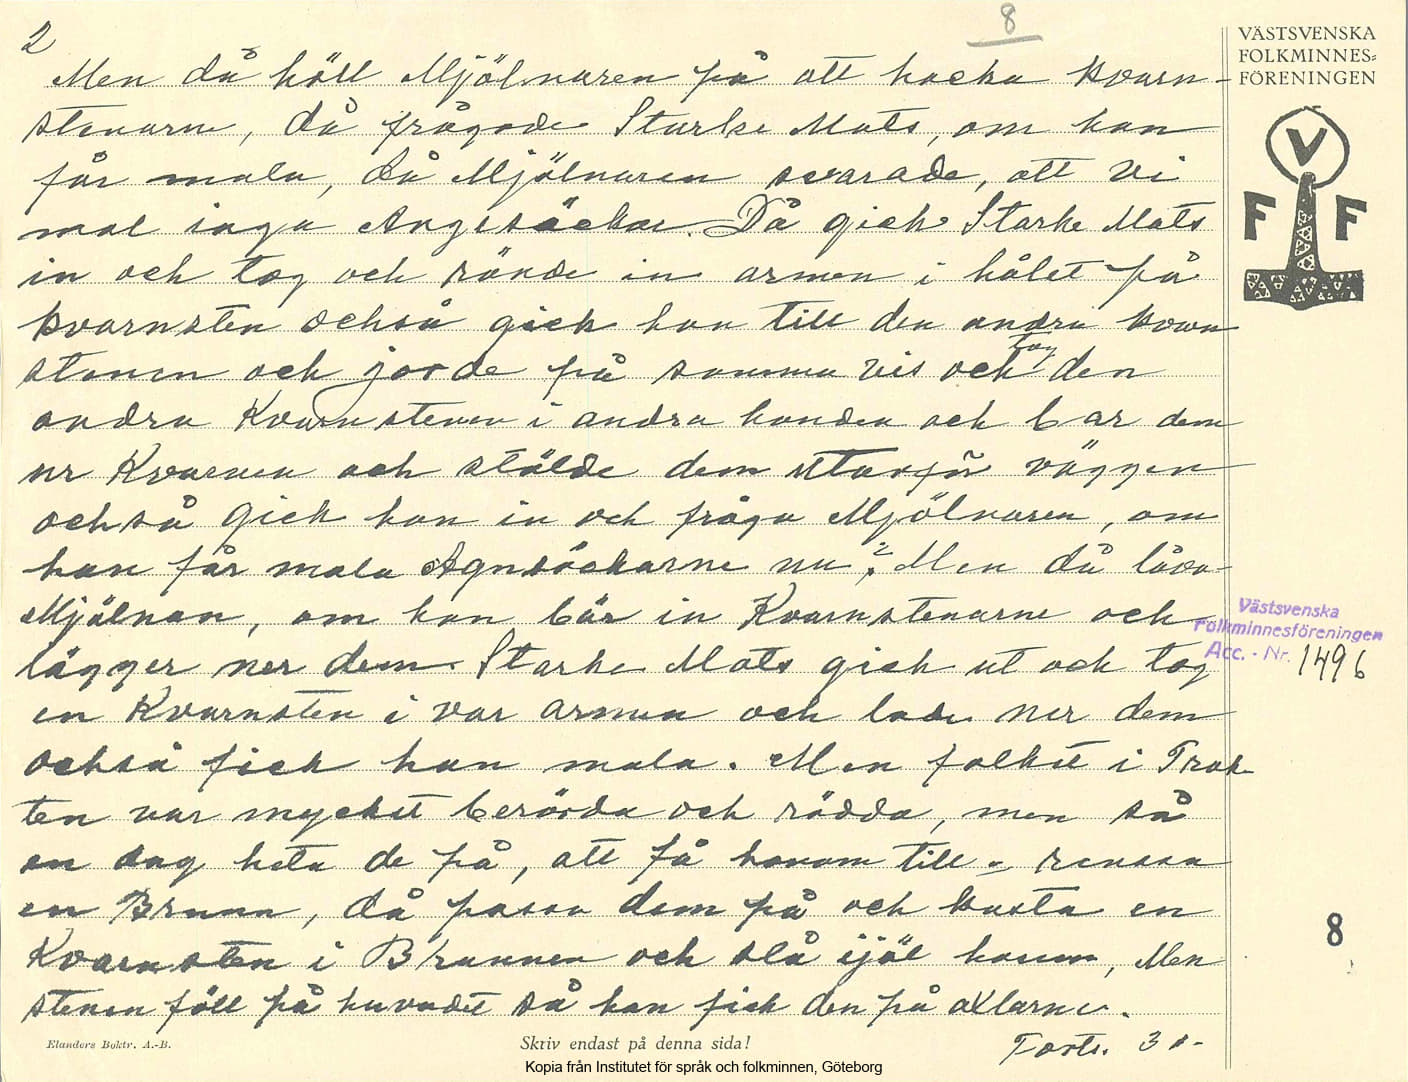 2
8
Men då höll Mjölnaren på att hacka kvarn-
stenarne, då frågade Starke Mats, om han
får mala, då Mjölnaren svarade, att vi
mal inga Angesäckar. Då gick Starke Mats
in och tog och rände in armen i hålet på
kvarnsten också gick han till den andra kvarn
stenen och jorde på samma vis och tog den
andra Kvarnstenen i andra handen och bar dem
ur Kvarnen och stälde dem utanför väggen
också gick han in och fråga Mjölnaren, om
han får mala Agnsäckarne nu? Men då låva-
Mjölnan, om han bär in Kvarnstenarne och
lägger ner dem. Starke Mats gick ut och tog
en Kvarnsten i var armen och lade ner dem
också fick han mala. Men folket i Trak-
ten var mycket berörda och rädda, men så
en dag hetu de på, att få honom till - rensa
en Brunn, då passa dem på och kasta en
Kvarnsten i Brunnen och slå ijäl honom, Men
stenen föll på huvudet så han fick den på axlarne.
Forts. 3 s-
VÄSTSVENSKA
FOLKMINNES=
FÖRENINGEN
V
F F
Västsvenska
Folkminnesföreningen
Acc. - Nr. 1496
8
Elanders Boktr. A.-B.
Skriv endast på denna sida!
Kopia från Institutet för språk och folkminnen, Göteborg